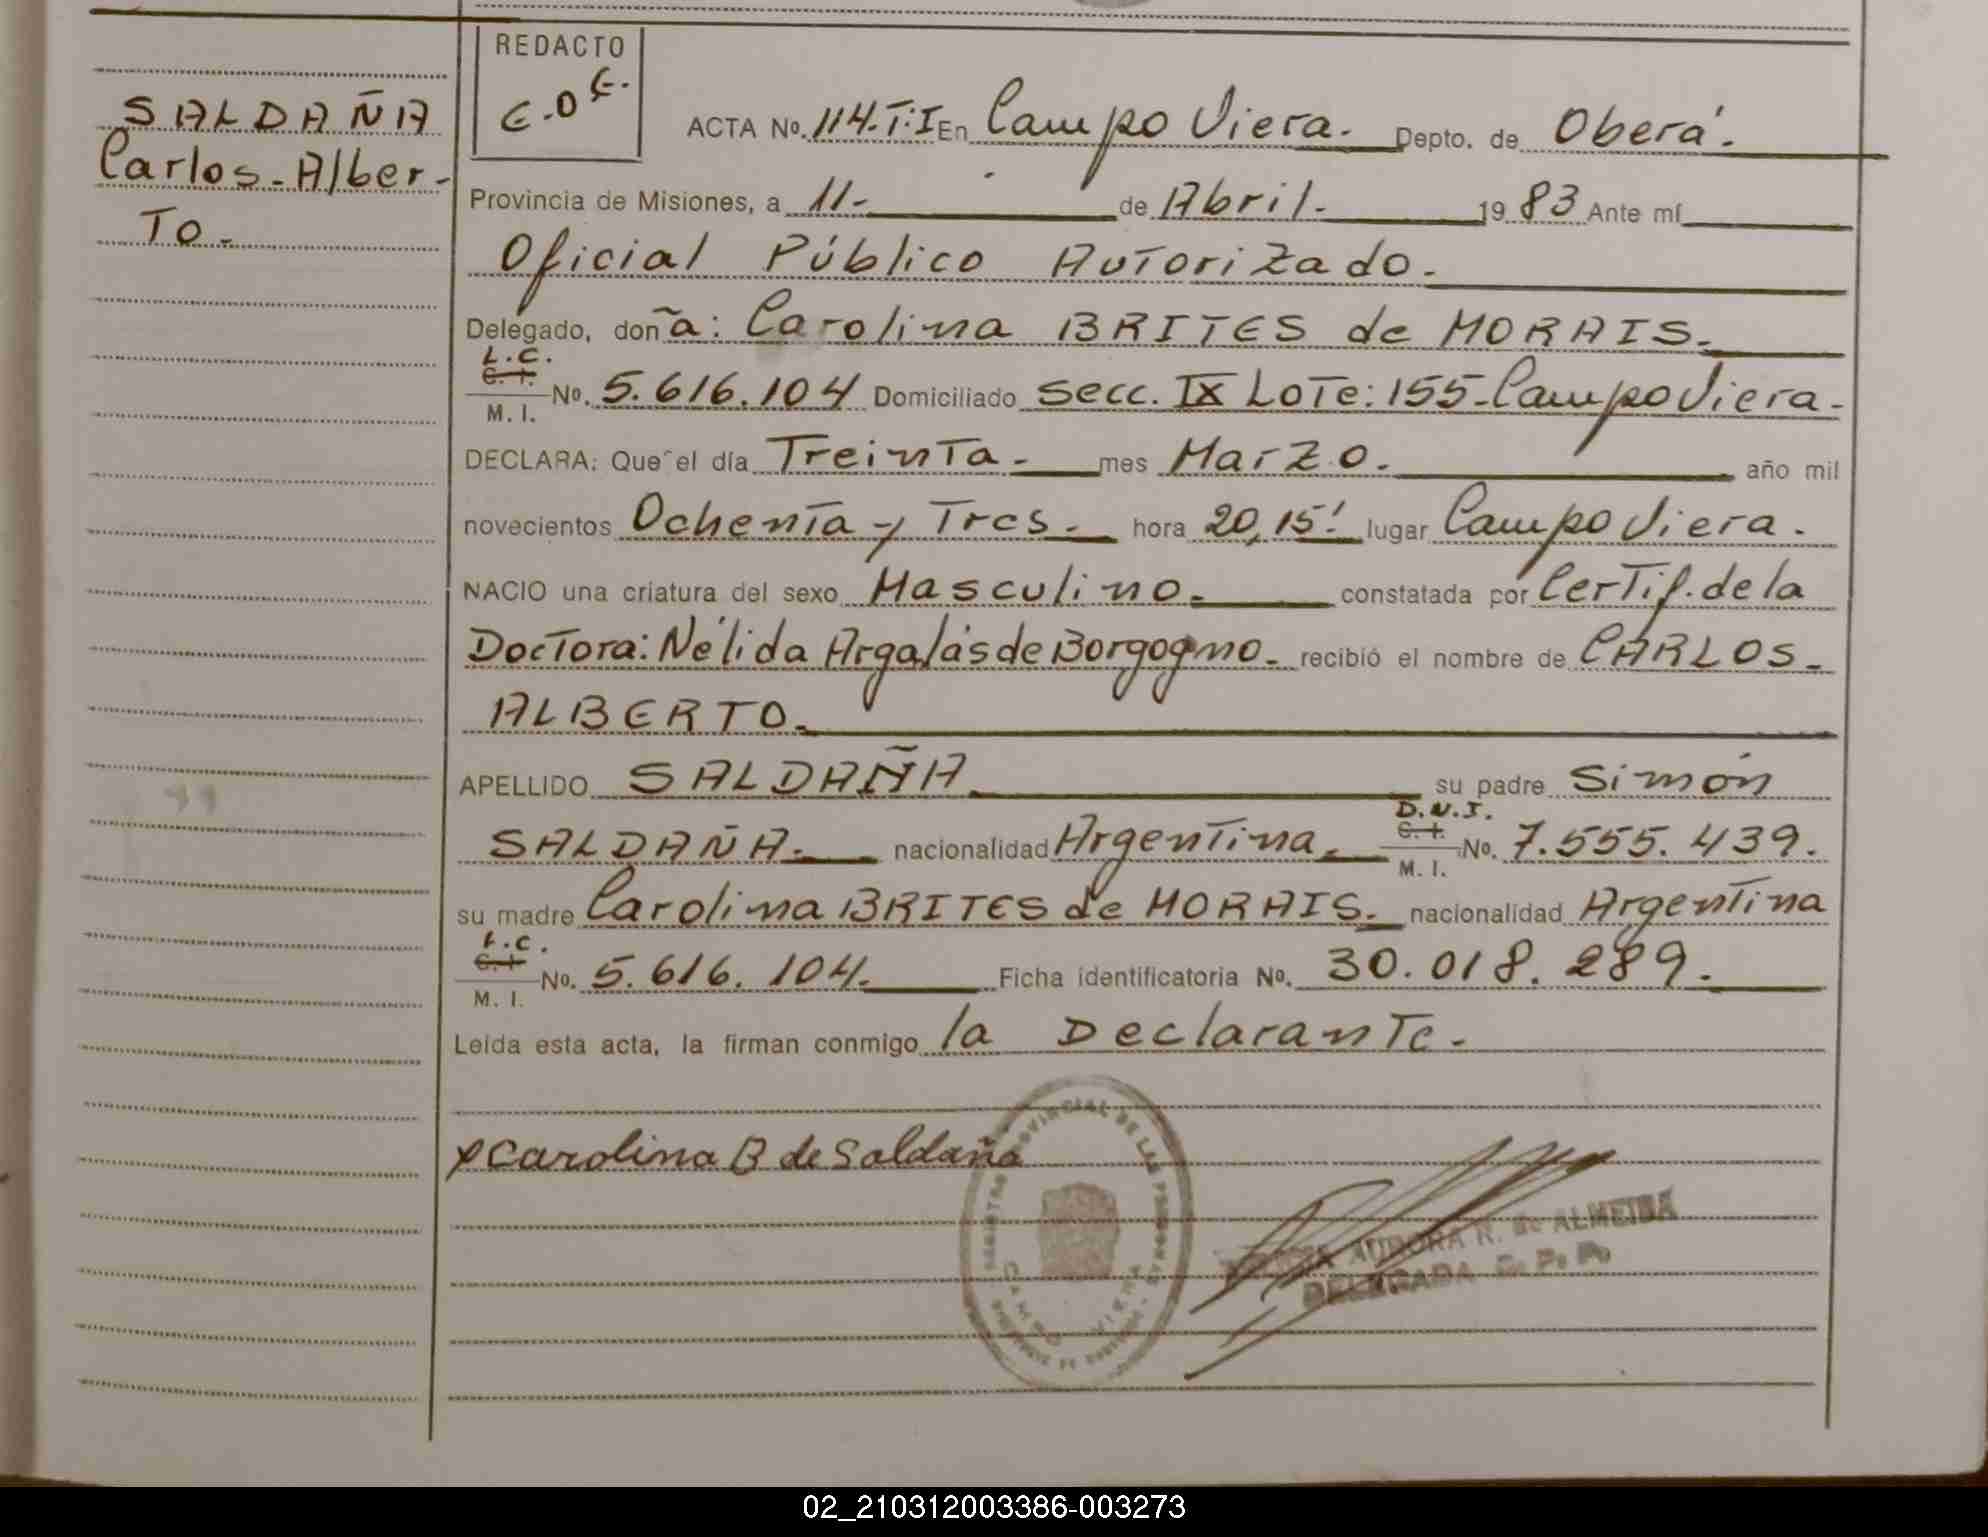 SALDAÑA
Carlos-Alber-
To-
REDACTO
E.D.E.
ACTA No. 114.T:I En Campo Viera. Depto. de Oberá.
Provincia de Misiones, a 11- de Abril. 1983 Ante mí
Oficial Público Autorizado.
Delegado, doña: Carolina BRITES de MORAIS.
L.C.
C. I. No. 5.616.104 Domiciliado Secc. IX Lote: 155-Campo Viera.
M. I.
DECLARA: Que el día Treinta. mes Marzo. año mil
novecientos Ochenta y Tres. hora 20,15! lugar Campo Viera.
NACIO una criatura del sexo Masculino. constatada por Certif. de la
Doctora: Nélida Argalás de Borgogno. recibió el nombre de CARLOS-
ALBERTO.
APELLIDO SALDAÑA su padre Simón
D.N.I.
SALDAÑA. nacionalidad Argentina. C. I. No. 7.555.439.
M. I.
su madre Carolina BRITES de MORAIS. nacionalidad Argentina
L.C.
C. I. No. 5.616.104. Ficha identificatoria No. 30.018.289.
M. I.
Leída esta acta, la firman conmigo la Declarante.
Carolina B de Saldaña
REGISTRO PROVINCIAL DE LAS PERSONAS
CAMPO VIERA
AURORA R. de ALMEIDA
DELEGADA R. P. P.
02_210312003386-003273